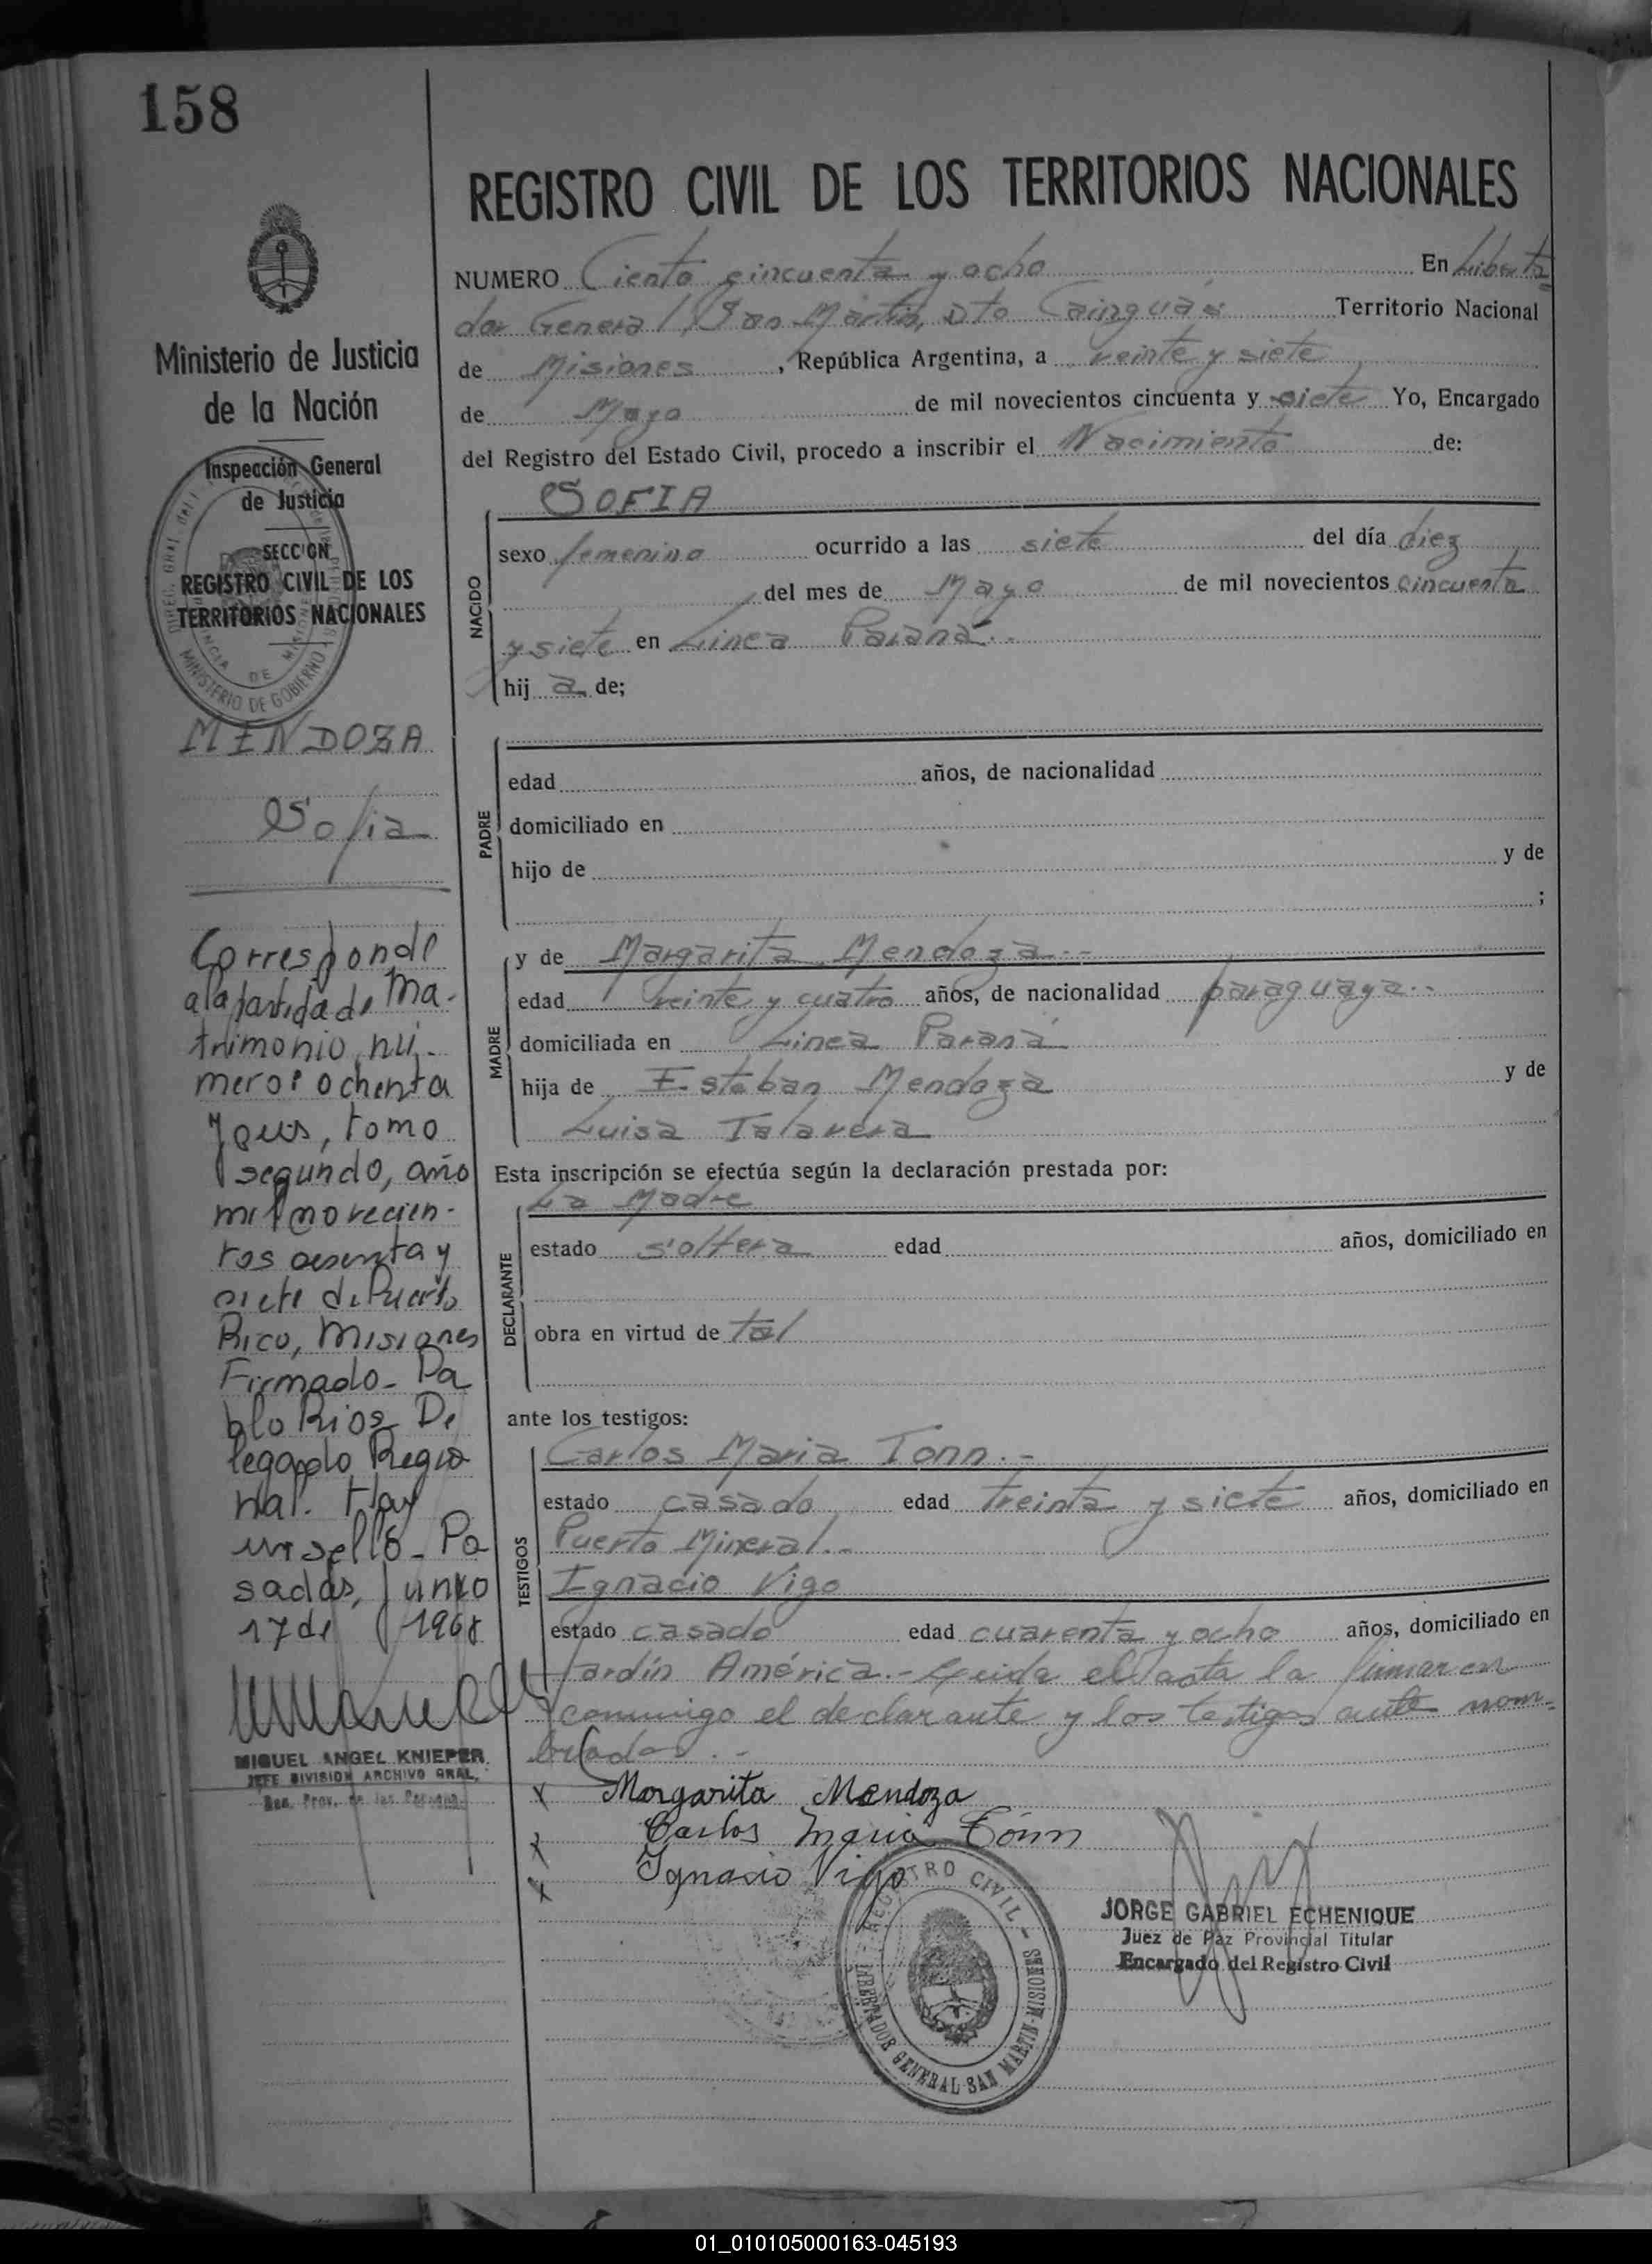 158
Ministerio de Justicia
de la Nación
Inspección General
de Justicia
SECCION
REGISTRO CIVIL DE LOS
TERRITORIOS NACIONALES
MINISTERIO DE GOBIERNO
MENDOZA
Sofia
Corresponde
a la partida de Ma-
trimonio, nú-
mero: ochenta
y seis, tomo
segundo, año
mil novecien-
tos sesenta y
siete de Puerto
Rico, Misiones
Firmado- Pa
blo Rios De
legado Regio
nal. Hay
un sello- Po
sadas, junio
17 de 1968
MIGUEL ANGEL KNIEPER
JEFE DIVISION ARCHIVO GRAL.
REGISTRO CIVIL DE LOS TERRITORIOS NACIONALES
NUMERO Ciento cincuenta y ocho En Liberta
dor General San Martín, Dto Cainguás Territorio Nacional
de Misiones, República Argentina, a veinte y siete
de Mayo de mil novecientos cincuenta y siete Yo, Encargado
del Registro del Estado Civil, procedo a inscribir el Nacimiento de:
SOFIA
NACIDO
sexo femenino ocurrido a las siete del día diez
del mes de Mayo de mil novecientos cincuenta
y siete en Linea Paraná.-
hij a de;
PADRE
edad años, de nacionalidad
domiciliado en
hijo de y de
;
MADRE
y de Margarita Mendoza.-
edad veinte y cuatro años, de nacionalidad paraguaya.-
domiciliada en Linea Paraná
hija de Esteban Mendoza y de
Luisa Talavera
Esta inscripción se efectúa según la declaración prestada por:
La Madre
DECLARANTE
estado soltera edad años, domiciliado en
obra en virtud de tal
ante los testigos:
TESTIGOS
Carlos Maria Tonn.-
estado casado edad treinta y siete años, domiciliado en
Puerto Mineral.-
Ignacio Vigo
estado casado edad cuarenta y ocho años, domiciliado en
Jardín América.- Leida el acta la firman
conmigo el declarante y los testigos ante nom-
brados.-
x Margarita Mendoza
x Carlos Maria Tönn
x Ignacio Vigo
REGISTRO CIVIL -
LIBERTADOR GENERAL SAN MARTIN-MISIONES
JORGE GABRIEL ECHENIQUE
Juez de Paz Provincial Titular
Encargado del Registro Civil
01_010105000163-045193